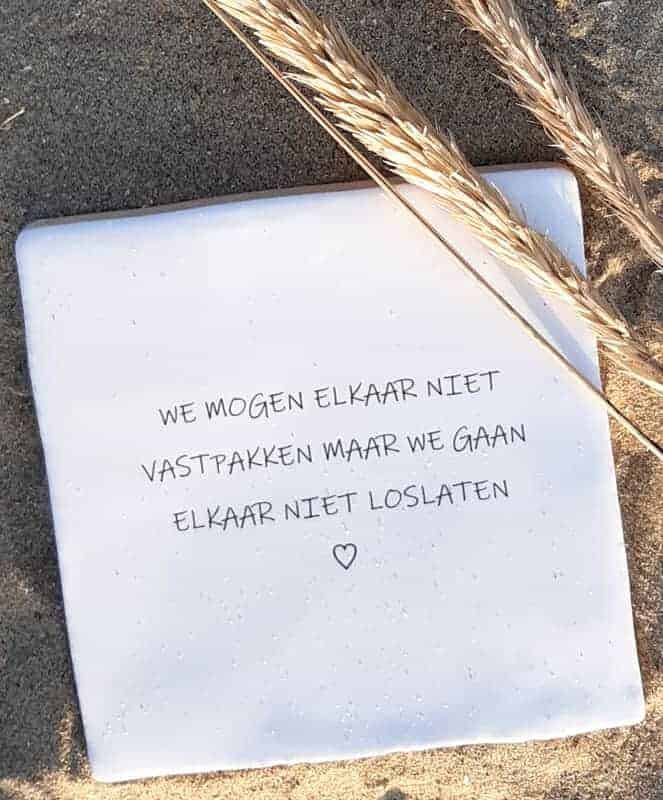 WE MOGEN ELKAAR NIET
VASTPAKKEN MAAR WE GAAN
ELKAAR NIET LOSLATEN
♡